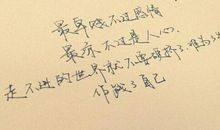 最卑贱不过感情
最凉不过是人心
走不进的世界就不要硬挤了 难为了
作贱了自己